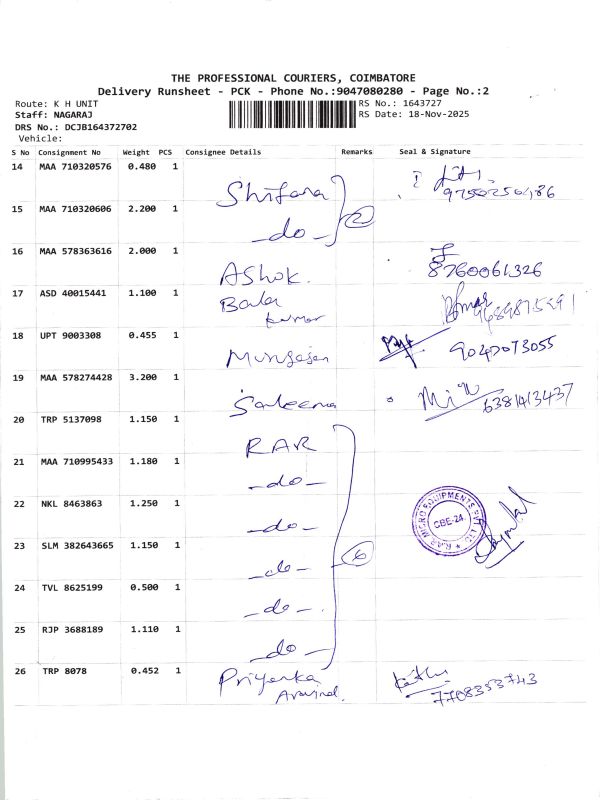 THE PROFESSIONAL COURIERS, COIMBATORE
Delivery Runsheet - PCK - Phone No.:9047080280 - Page No.:2
Route: K H UNIT RS No.: 1643727
Staff: NAGARAJ RS Date: 18-Nov-2025
DRS No.: DCJB164372702
Vehicle:
S No Consignment No Weight PCS Consignee Details Remarks Seal & Signature
14 MAA 710320576 0.480 1 Shifana 2 9750250486
15 MAA 710320606 2.200 1 -do-
16 MAA 578363616 2.000 1 Ashok. 8760061326
17 ASD 40015441 1.100 1 Bala
kumar
18 UPT 9003308 0.455 1 Murugesan 9047073055
19 MAA 578274428 3.200 1 Saleema 6381413437
20 TRP 5137098 1.150 1 RAR
21 MAA 710995433 1.180 1 -do-
22 NKL 8463863 1.250 1 -do- CBE-24.
23 SLM 382643665 1.150 1 -do- 6
24 TVL 8625199 0.500 1 -do-.
25 RJP 3688189 1.110 1 -do-
26 TRP 8078 0.452 1 Priyanka
Arvind. 7708353743